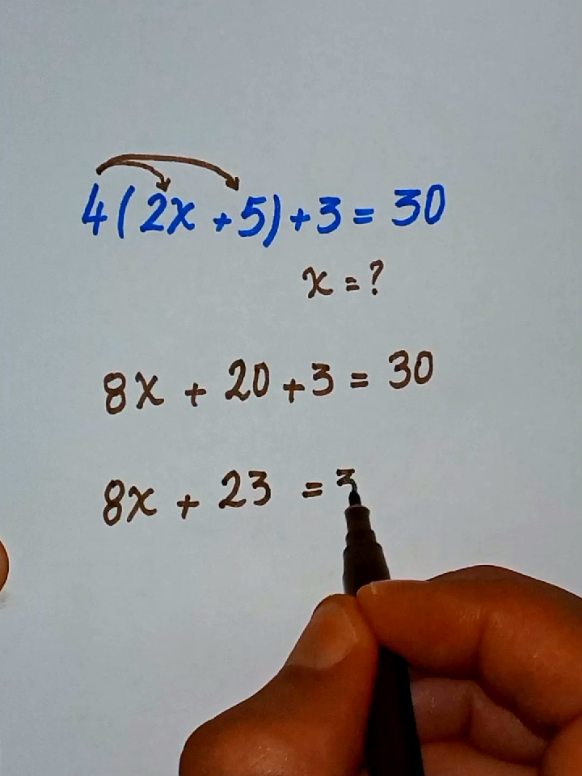 4(2x+5)+3=30
x=?
8x+20+3=30
8x+23=3